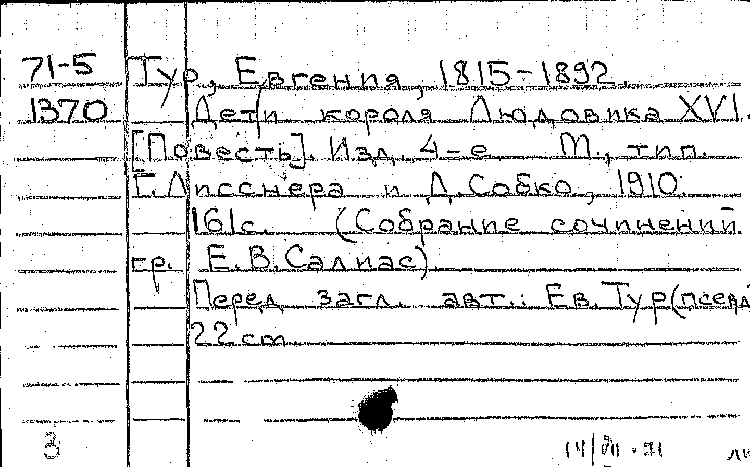 71-5 Тур, Евгения, 1815-1892.
1370 Дети короля Людовика XVI.
[Повесть]. Изд. 4-е М., тип.
Г. Лисснера и Д. Собко, 1910.
161с. (Собрание сочинений
гр. Е.В. Салиас)
Перед загл. авт.: Ев. Тур (псевд
22 cm
3